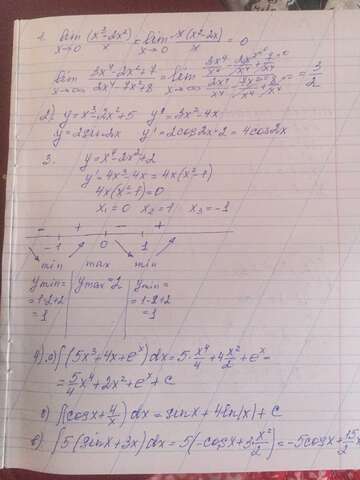 1. lim x→0 (x³-2x²)/x = lim x→0 x(x²-2x)/x = 0
lim x→∞ (3x⁴-2x²+7)/(2x⁴-7x²+8) = lim x→∞ = 3/2
2) y=x³-2x²+5 y'=3x²-4x
y=2sin2x y'=2cos2x·2=4cos2x
3. y=x⁴-2x²+2
y'=4x³-4x=4x(x²-1)
4x(x²-1)=0
x₁=0 x₂=1 x₃=-1
- + - +
-1 0 1
min max min
ymin= ymax=2 ymin=
=1-2+2 =1-2+2
=1 =1
4) a) ∫(5x³+4x+eˣ)dx=5·x⁴/4+4x²/2+eˣ=
=5/4x⁴+2x²+eˣ+c
б) ∫(cosx+4/x)dx=sinx+4ln(x)+c
в) ∫5(sinx+3x)dx=5(-cosx+3x²/2)=-5cosx+15/2